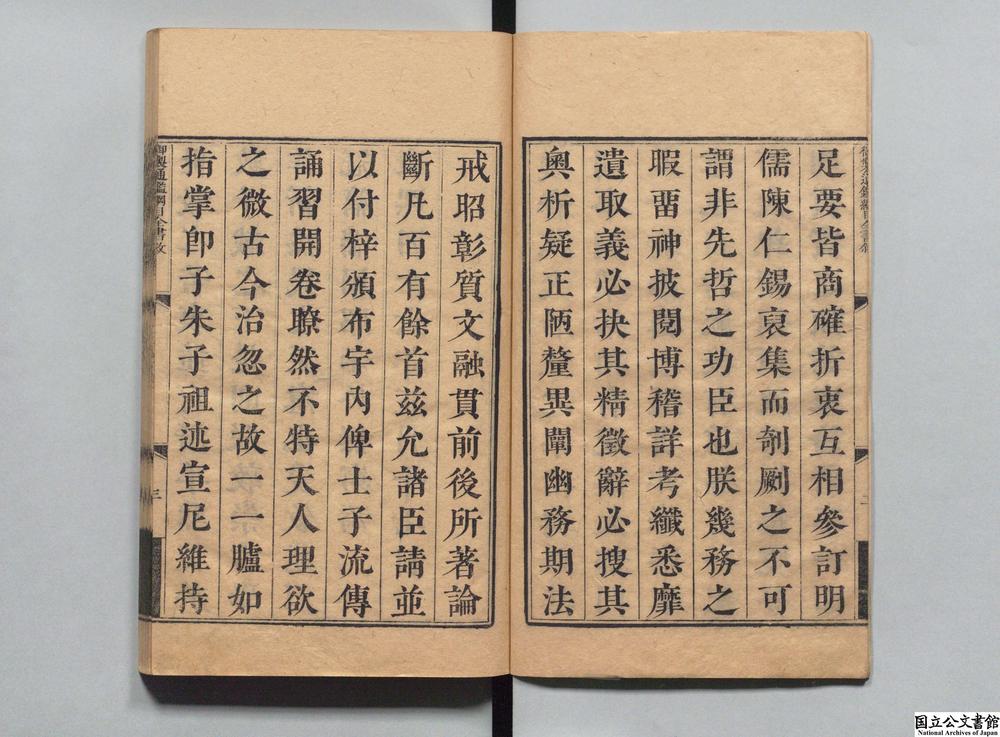 足要皆商確折衷互相參訂明
儒陳仁錫裒集而剞劂之不可
謂非先哲之功臣也朕幾務之
暇畱神披閱博稽詳考纖悉靡
遺取義必抉其精徵辭必搜其
奧析疑正陋釐異闡幽務期法
戒昭彰質文融貫前後所著論
斷凡百有餘首茲允諸臣請並
以付梓頒布宇內俾士子流傳
誦習開卷瞭然不特天人理欲
之微古今治忽之故一一臚如
指掌卽子朱子祖述宣尼維持
御製通鑑綱目全書敘
三
国立公文書館
National Archives of Japan